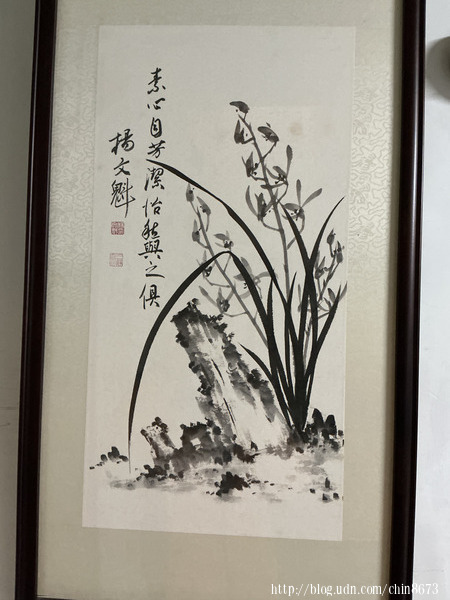 素心自芳潔怡然與之俱
楊文魁
http://blog.udn.com/chin8673